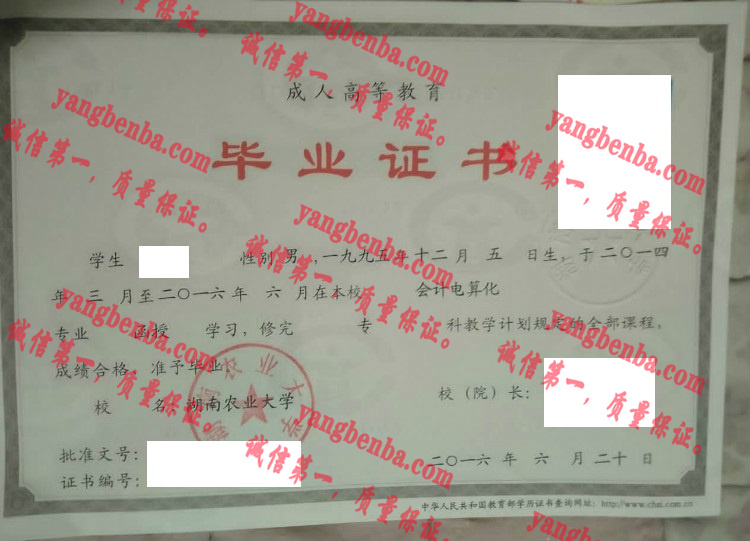 成人高等教育
毕业证书
学生 性别 男 ,一九九五年十二月 五 日生，于二〇一四
年 三 月至二〇一六年 六 月在本校 会计电算化
专业 函授 学习，修完 专 科教学计划规定的全部课程，
成绩合格，准予毕业。
校 （院）长：
校 名：湖南农业大学
批准文号：
二〇一六年 六 月二十日
证书编号：
中华人民共和国教育部学历证书查询网址：http://www.chsi.com.cn
湖南农业大学
yangbenba.com
诚信第一，质量保证。
yangbenba.com
诚信第一，质量保证。
yangbenba.com
诚信第一，质量保证。
yangbenba.com
诚信第一，质量保证。
yangbenba.com
诚信第一，质量保证。
yangbenba.com
诚信第一，质量保证。
yangbenba.com
诚信第一，质量保证。
yangbenba.com
诚信第一，质量保证。
yangbenba.com
诚信第一，质量保证。